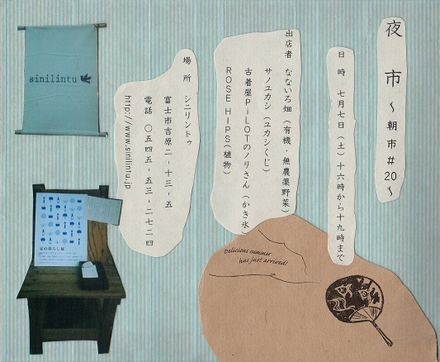 夜市 〜朝市#20〜
日時 七月七日(土)十六時から十九時まで
出店者 なないろ畑(有機・無農薬野菜)
サノユカシ(ユカシくじ)
古着屋PiLOTのノリさん(かき氷)
ROSE HIPS(植物)
場所 シニリントゥ
富士市吉原二-十三-五
電話 〇五四五-五三-二七二四
http://www.sinilintu.jp
sinilintu
Delicious summer
has just arrived!